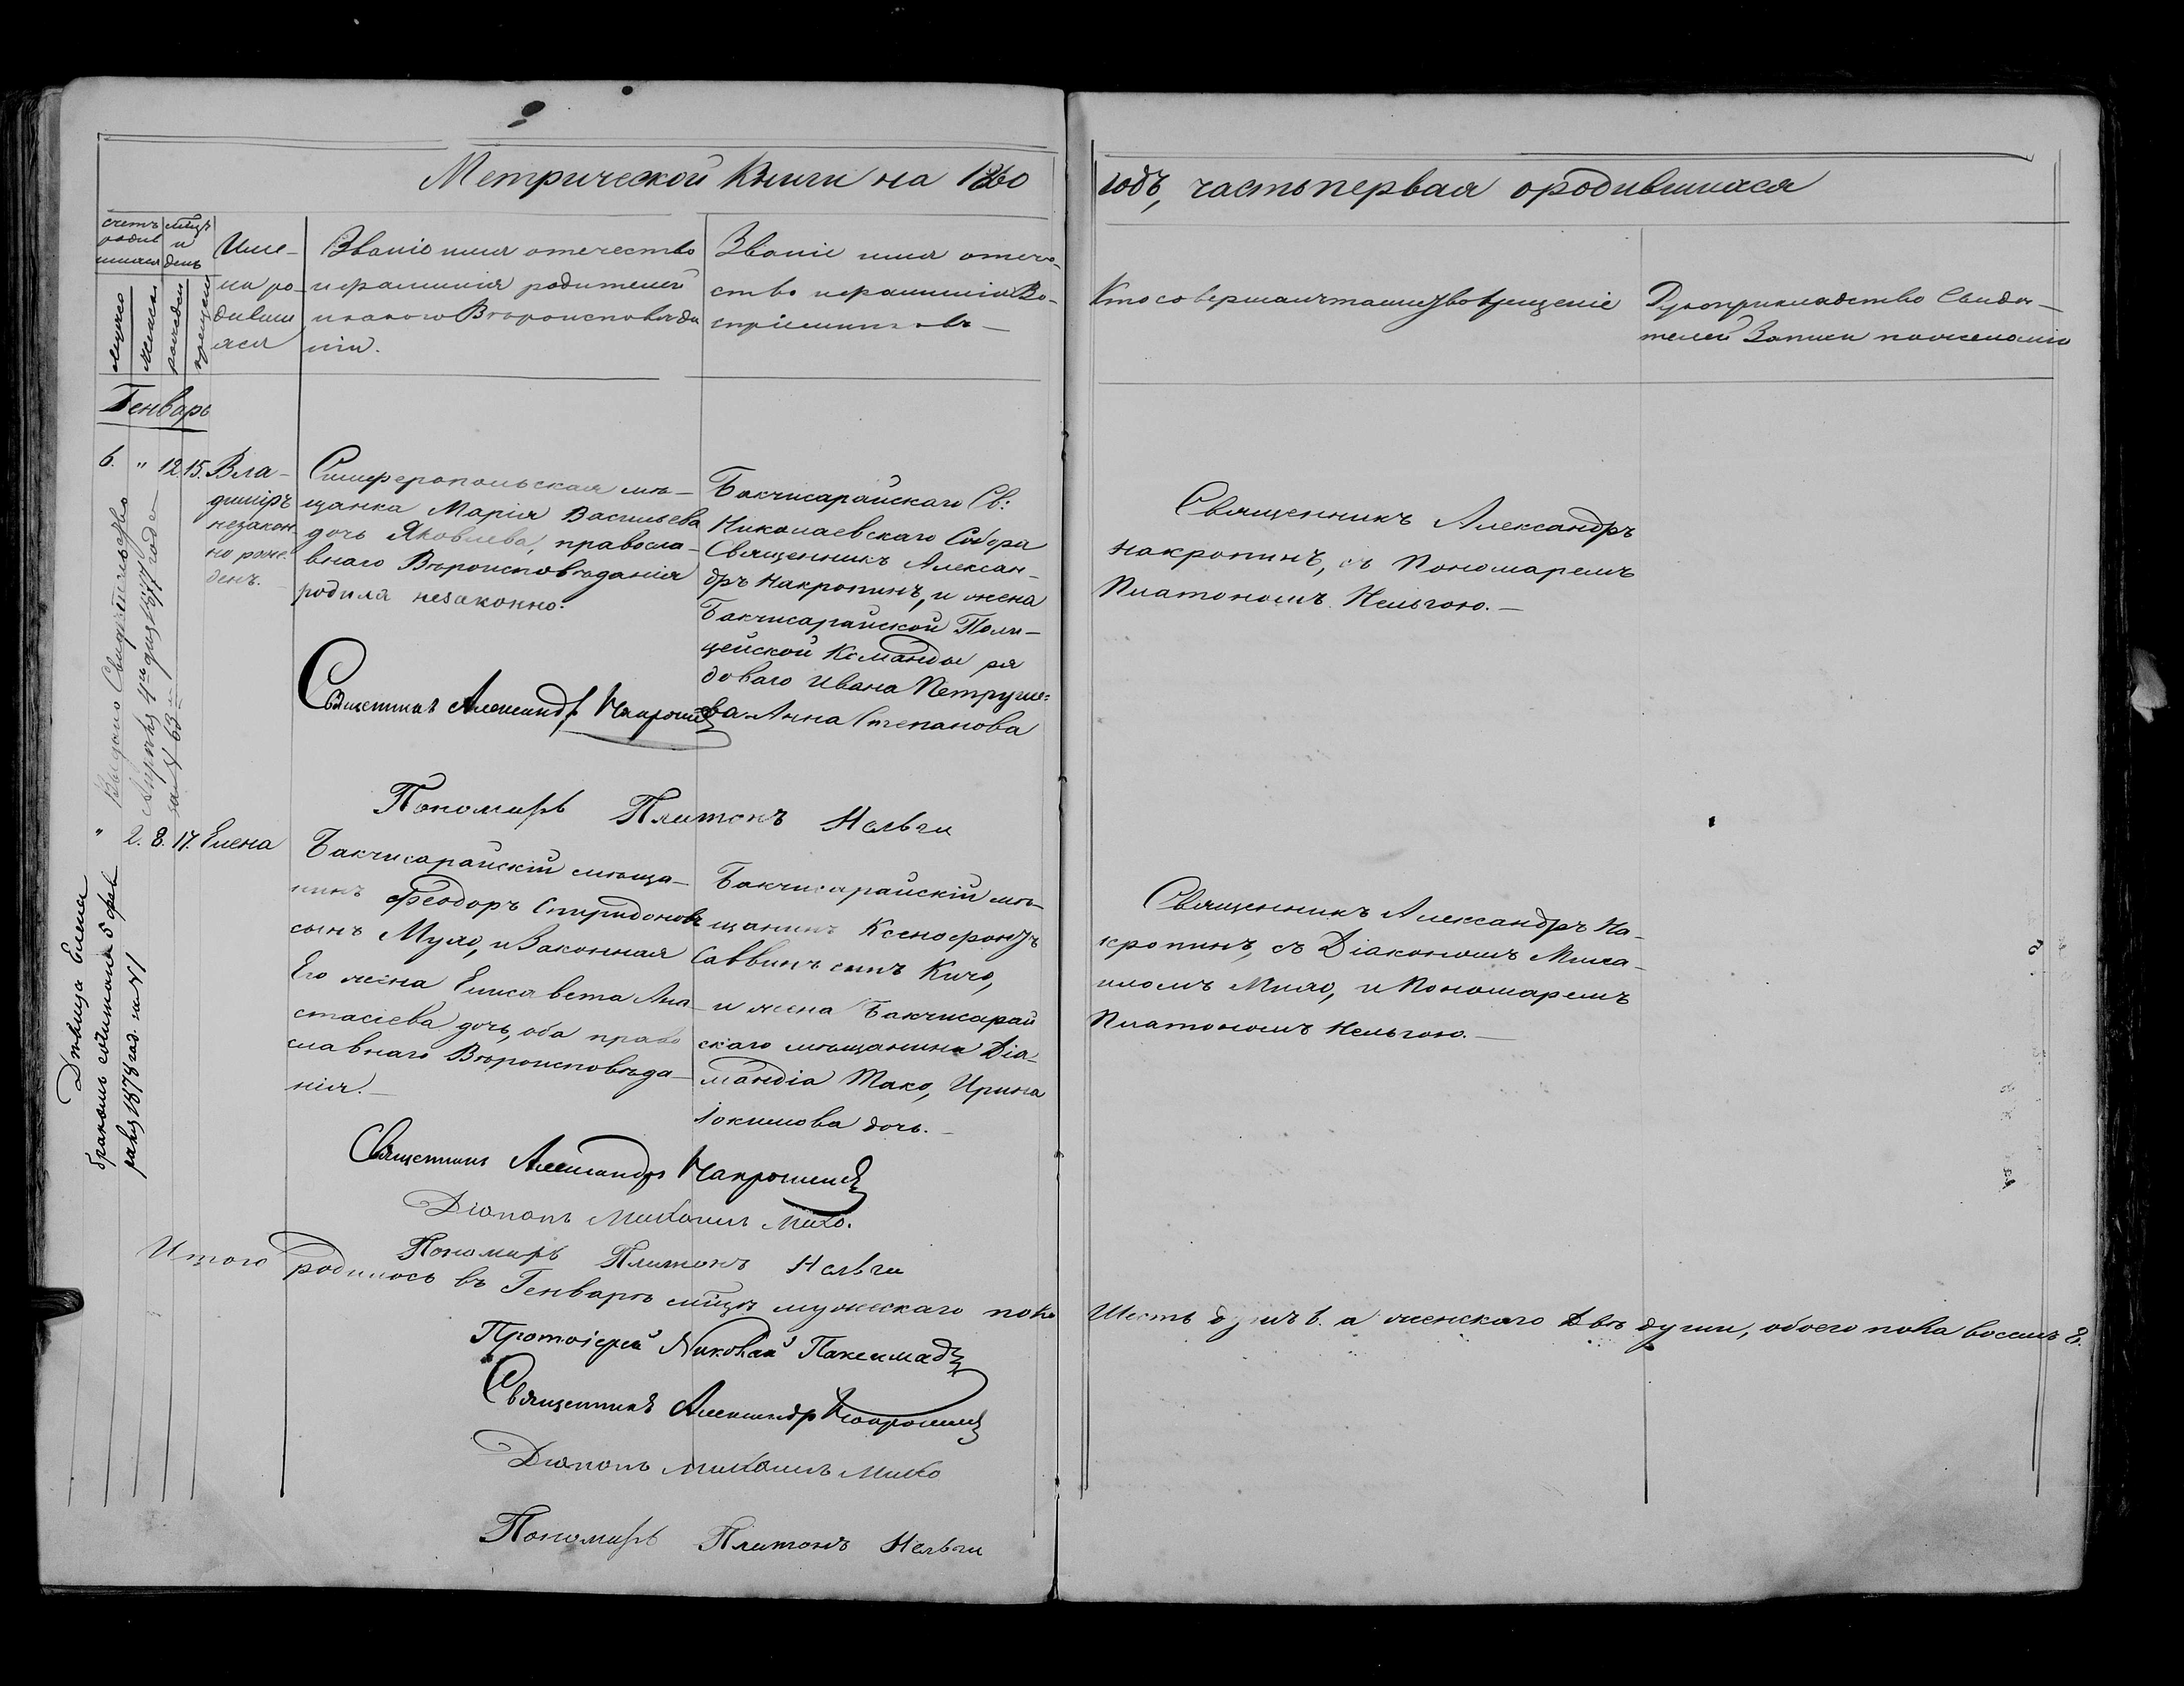 Метрической Книги на 1860
годъ, часть первая о родившихся
счетъ
родив
шихся
мѣсяцъ
и
день
Име-
на ро-
дивши
яся
Званіе имя отечество
и фамилія родителей
и какого Вѣроисповѣда
нія.
Званіе имя отече-
ство и фамилія Во-
спріемниковъ
Кто совершалъ таинство крещеніе
Рукоприкладство Свидѣ-
телей Записи по желанію
мужеска
женска
рожденія
крещенія
Генварь
6. " 12. 15. Вла-
диміръ
незакон-
но рож-
денъ.
Симферопольская мѣ-
щанка Марія Васильева
дочь Яковлева, правосла-
внаго Вѣроисповѣданія
родила незаконно.
Бакчисарайскаго Св:
Николаевскаго Собора
Священникъ Алексан-
дръ Накропинъ, и жена
Бакчисарайской Поли-
цейской Команды ря
доваго Ивана Петруше-
ва Анна Степанова
Священникъ Александръ
Накропинъ, съ Пономаремъ
Платономъ Нельгою.
Священникъ Александръ Накропинъ
Пономарь Платонъ Нельги
Выдано Свидѣтельство
1877 года
за № 63
" 2. 8. 17. Елена
Бакчисарайскій мѣща-
нинъ Феодоръ Спиридоновъ
сынъ Мухо, и Законная
Его жена Елисавета Ана-
стасіева дочь, оба право
славнаго Вѣроисповѣда-
нія.
Бакчисарайскій мѣ-
щанинъ Ксенофонтъ
Саввинъ сынъ Кичо,
и жена Бакчисарай
скаго мѣщанина Діа-
мандія Тако, Ирина
Іокимова дочь.
Священникъ Александръ На-
кропинъ, съ Діакономъ Миха-
иломъ Михо, и Пономаремъ
Платономъ Нельгою.
Дѣвица Елена
бракомъ сочитана 5 фев
раля 1878 год. по № 1
Священникъ Александръ Накропинъ
Діаконъ Михаилъ Михо.
Пономарь Платонъ Нельги
Итого родилось въ Генварѣ мѣсяцѣ мужескаго пола
Шесть душъ 6. а женскаго двѣ души, обоего пола восемь 8.
Протоіерей Николай Пакесмадъ
Священникъ Александръ Накропинъ
Діаконъ Михаилъ Михо
Пономарь Платонъ Нельги